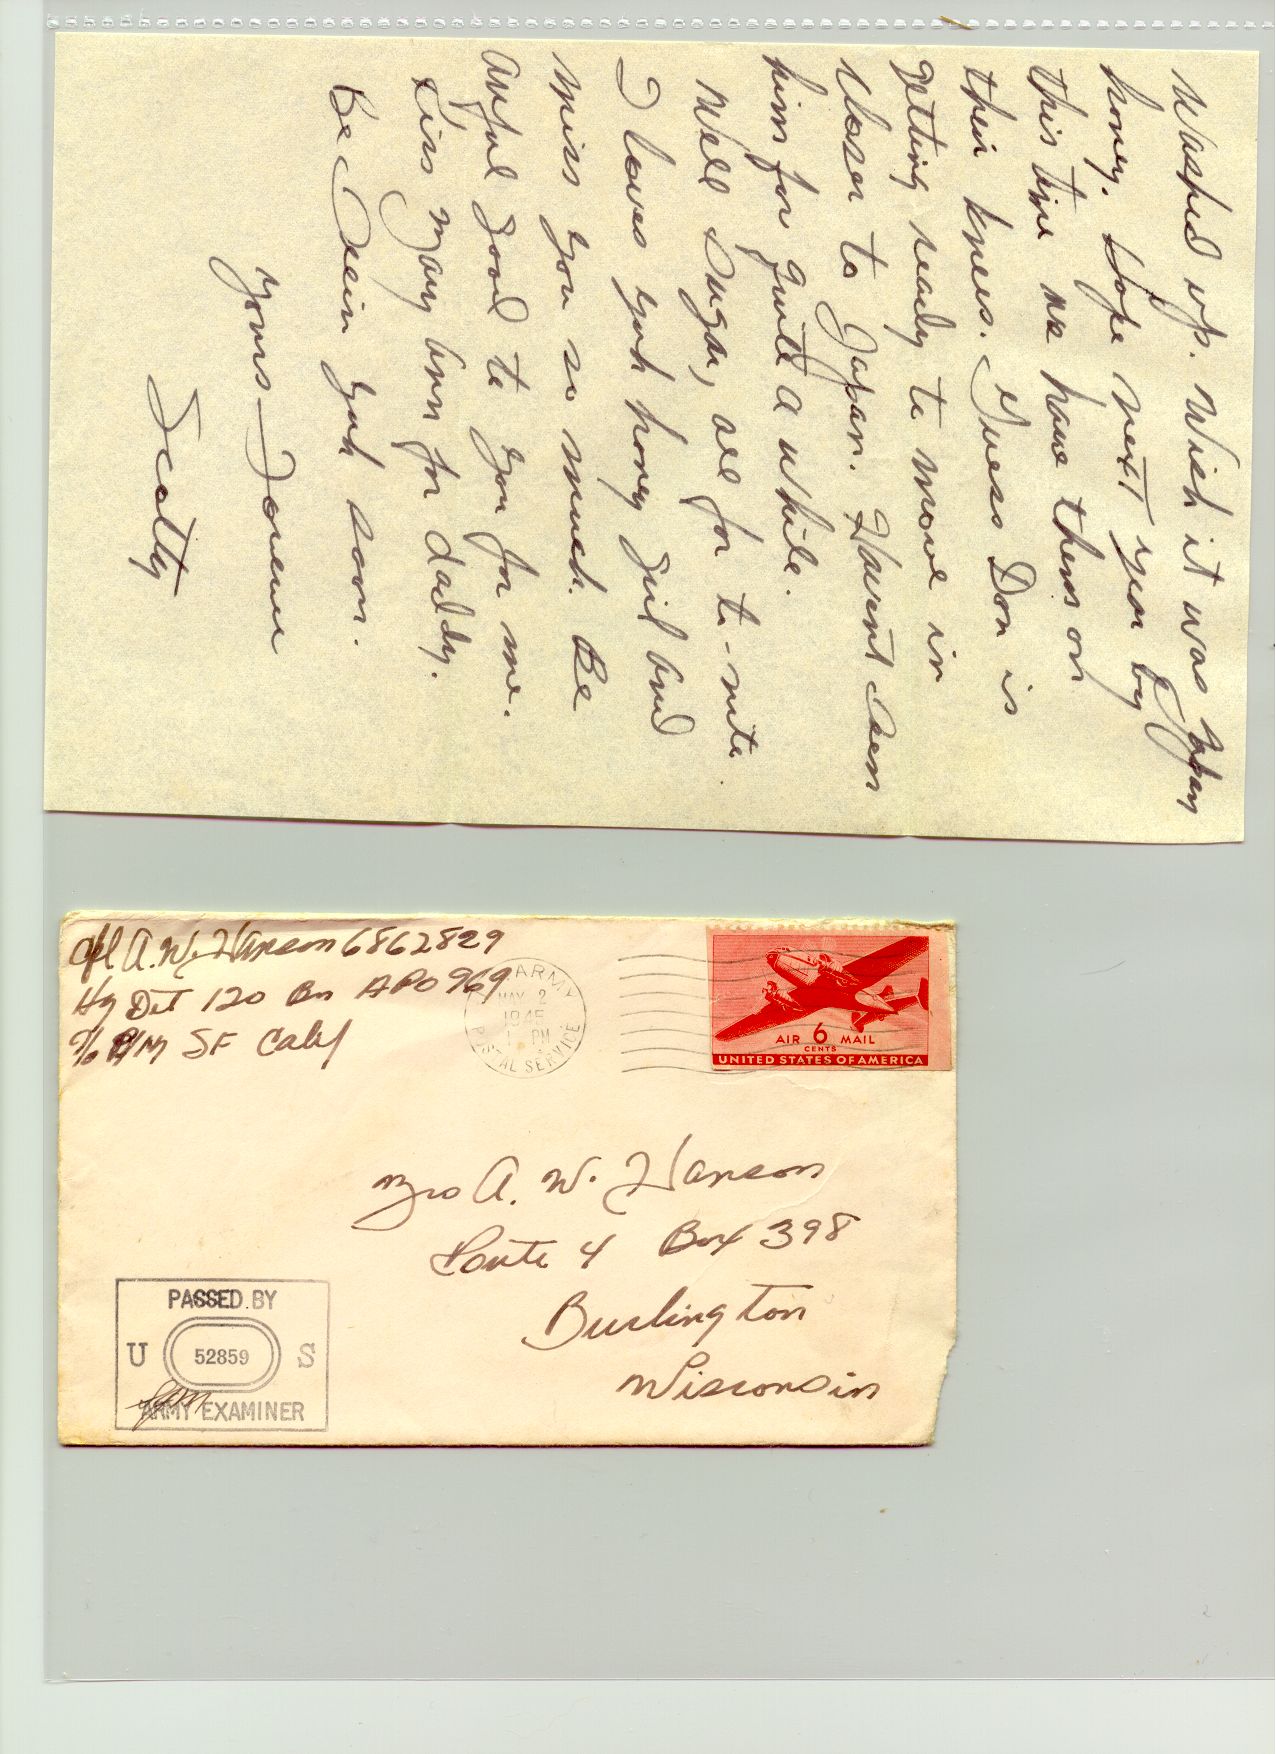 Washed up. Wish it was Japan
honey. Hope next year by
this time we have them on
their knees. Guess Don is
getting ready to move in
closer to Japan. Havent seen
him for quite a while.
Well Sugar, all for to-nite
I loves yuh honey girl and
miss you so much. Be
awful good to you for me.
Kiss Mary Ann for daddy.
Be Seein yuh soon.
Yours—Forever
Scotty
Cpl A. W. Hanson 6862829
Hq Det 120 Bn APO 969
c/o P/M SF Calif
ARMY
MAY 2
1945
1 PM
POSTAL SERVICE
AIR 6 MAIL
CENTS
UNITED STATES OF AMERICA
Mrs A. W. Hanson
Route 4 Box 398
Burlington
Wisconsin
PASSED BY
U 52859 S
ARMY EXAMINER